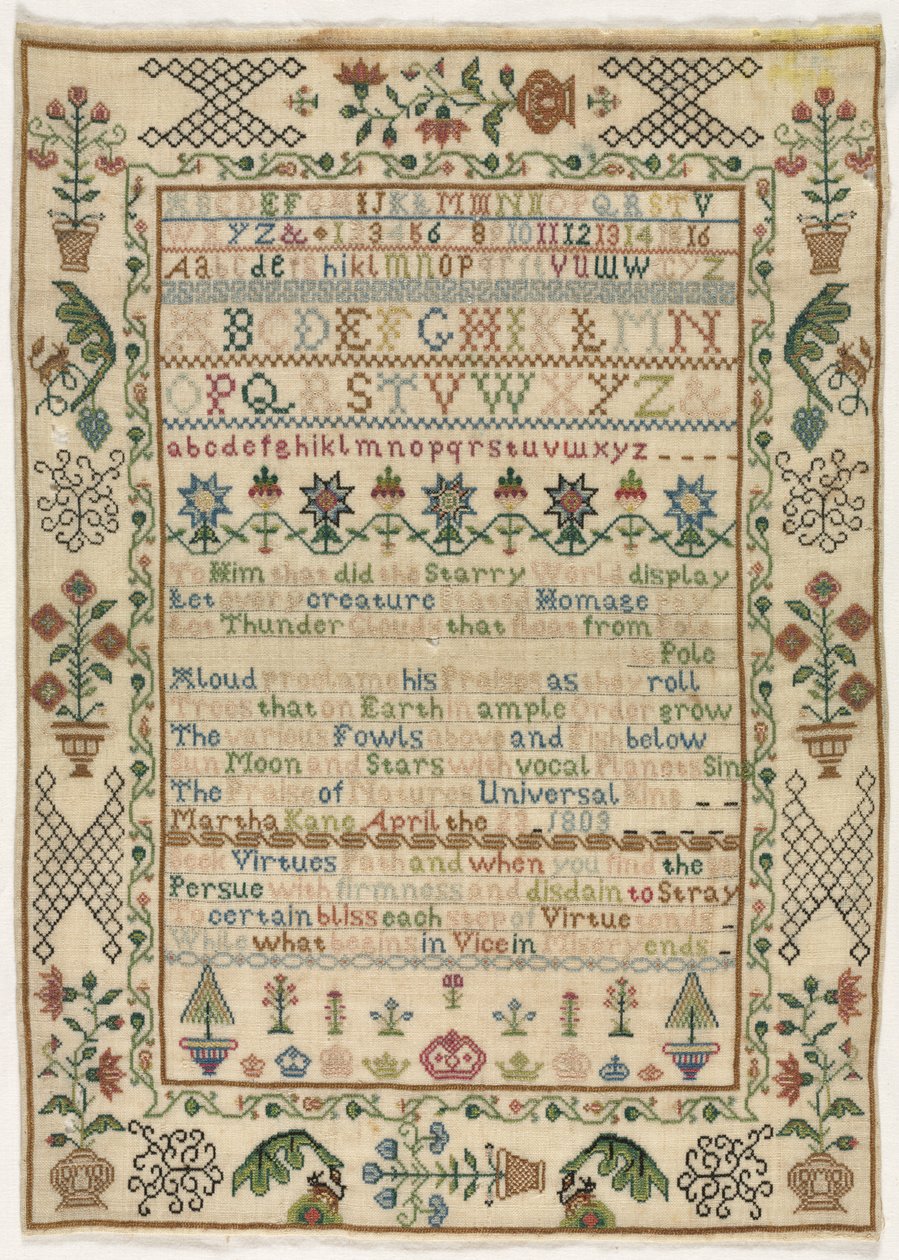 A B C D E F G H I J K L M M N N O P Q R S T V
W X Y Z & 1 2 3 4 5 6 7 8 9 10 11 12 13 14 15 16
A a b c d e f g h i k l m n o p q r s t v u w w x y z
A B C D E F G H I K L M N
O P Q R S T V W X Y Z &
a b c d e f g h i k l m n o p q r s t u v w x y z
To Him that did the Starry World display
Let every creature Homage pay
Let Thunder Clouds that float from Pole
to Pole
Aloud proclame his Praises as they roll
Trees that on Earth in ample Order grow
The various Fowls above and Fish below
Sun Moon and Stars with vocal Planets Sing
The Praise of Natures Universal King
Martha Kane April the 23 1803
Seek Virtues Path and when you find the
Persue with firmness and disdain to Stray
To certain bliss each step of Virtue tends
While what begins in Vice in Misery ends